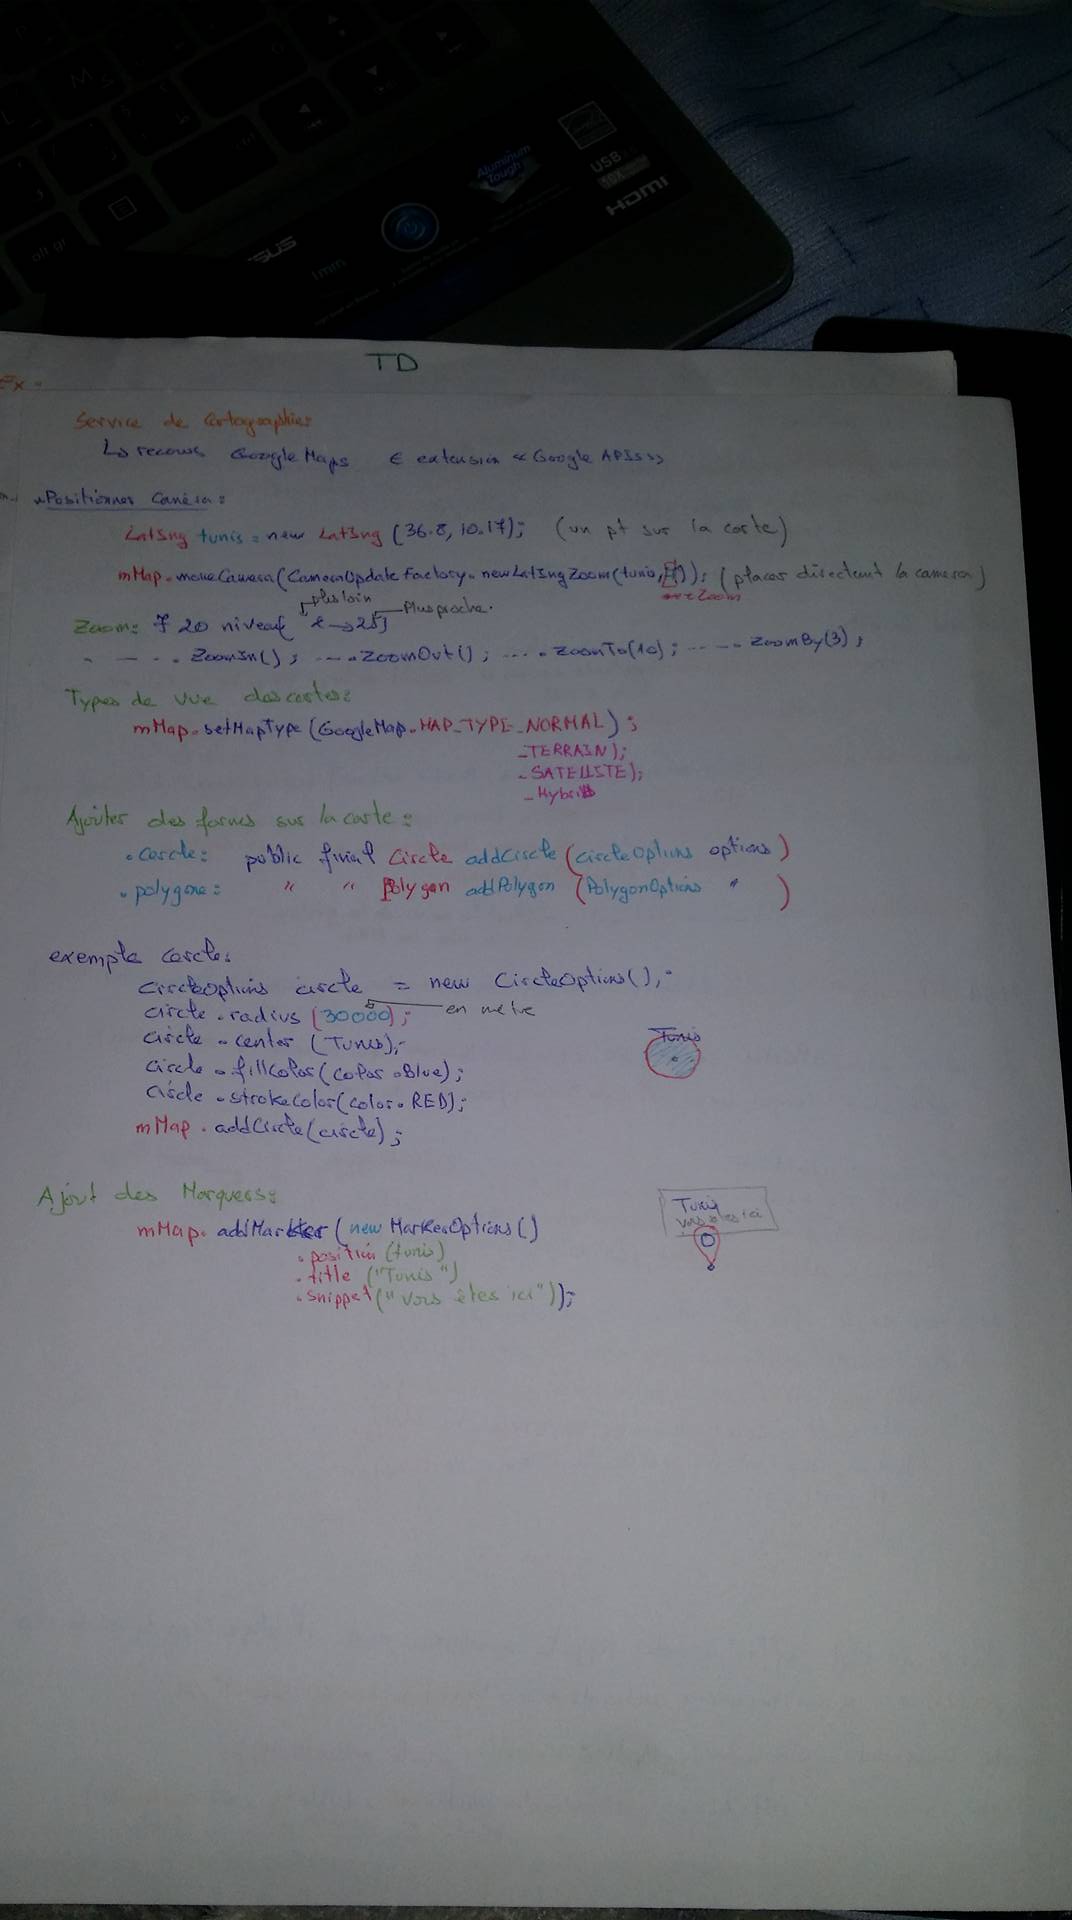 alt gr
ASUS
Aluminum
Tough
USB
10X
HDMI
TD
Ex
Service de Cartographie:
↳ recours Google Maps ∈ extension « Google APIs »
Positionner Caméra:
LatIng tunis = new LatIng (36.8, 10.17); (un pt sur la carte)
mMap.moveCamera(CameraUpdateFactory.newLatIngZoom(tunis, )); (placer directemt la camera)
Zoom
plus loin
Plus proche.
Zoom: 20 niveau
ZoomIn(); .... ZoomOut(); .... ZoomTo(10); .... ZoomBy(3);
Types de vue des cartes:
mMap.setMapType(GoogleMap.MAP_TYPE_NORMAL);
_TERRAIN);
_SATELLITE);
_Hybrid
Ajouter des formes sur la carte:
. Cercle: public final Circle addCircle (CircleOptions options)
. polygone: " " Polygon addPolygon (PolygonOptions " )
exemple cercle:
CircleOptions circle = new CircleOptions();
circle.radius (30000); en metre
circle.center (Tunis);
circle.fillColor(color.Blue);
circle.strokeColor(color.RED);
mMap.addCircle(circle);
Tunis
Ajout des Marquers:
mMap.addMarkter (new MarkerOptions()
.position (tunis)
.title ("Tunis")
.snippet ("vous êtes ici"));
Tunis
vous êtes ici